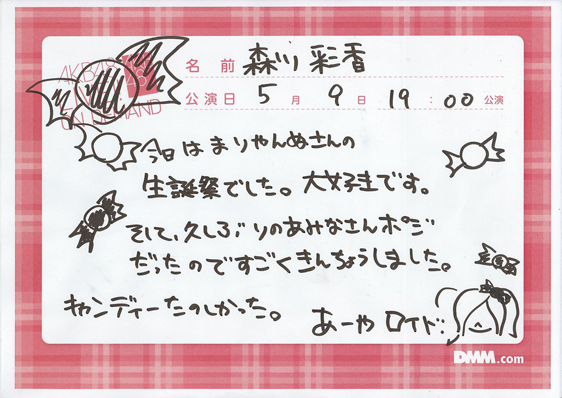 AKB48
ON DEMAND
名前 森川彩香
公演日 5月9日 19:00公演
今日はまりやんぬさんの
生誕祭でした。大好きです。
そして、久しぶりのあみなさんポジ
だったのですごくきんちょうしました。
キャンディーたのしかった。
あーやロイド.
DMM.com